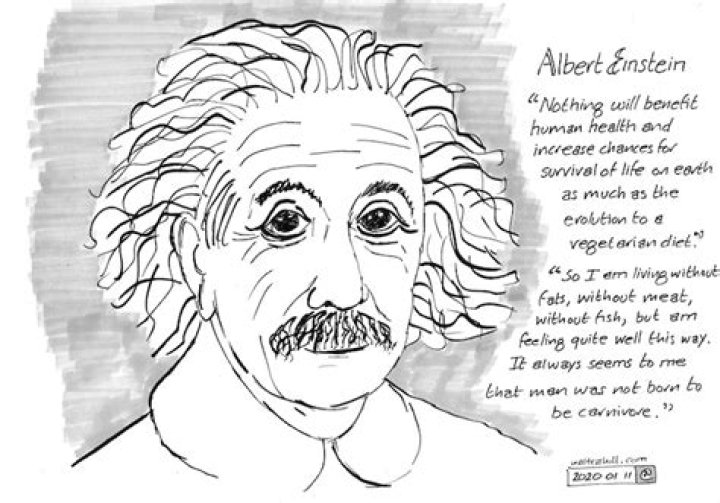 Albert Einstein
"Nothing will benefit
human health and
increase chances for
survival of life on earth
as much as the
evolution to a
vegetarian diet."
"So I am living without
fats, without meat,
without fish, but am
feeling quite well this way.
It always seems to me
that man was not born to
be carnivore."
2020 01 11